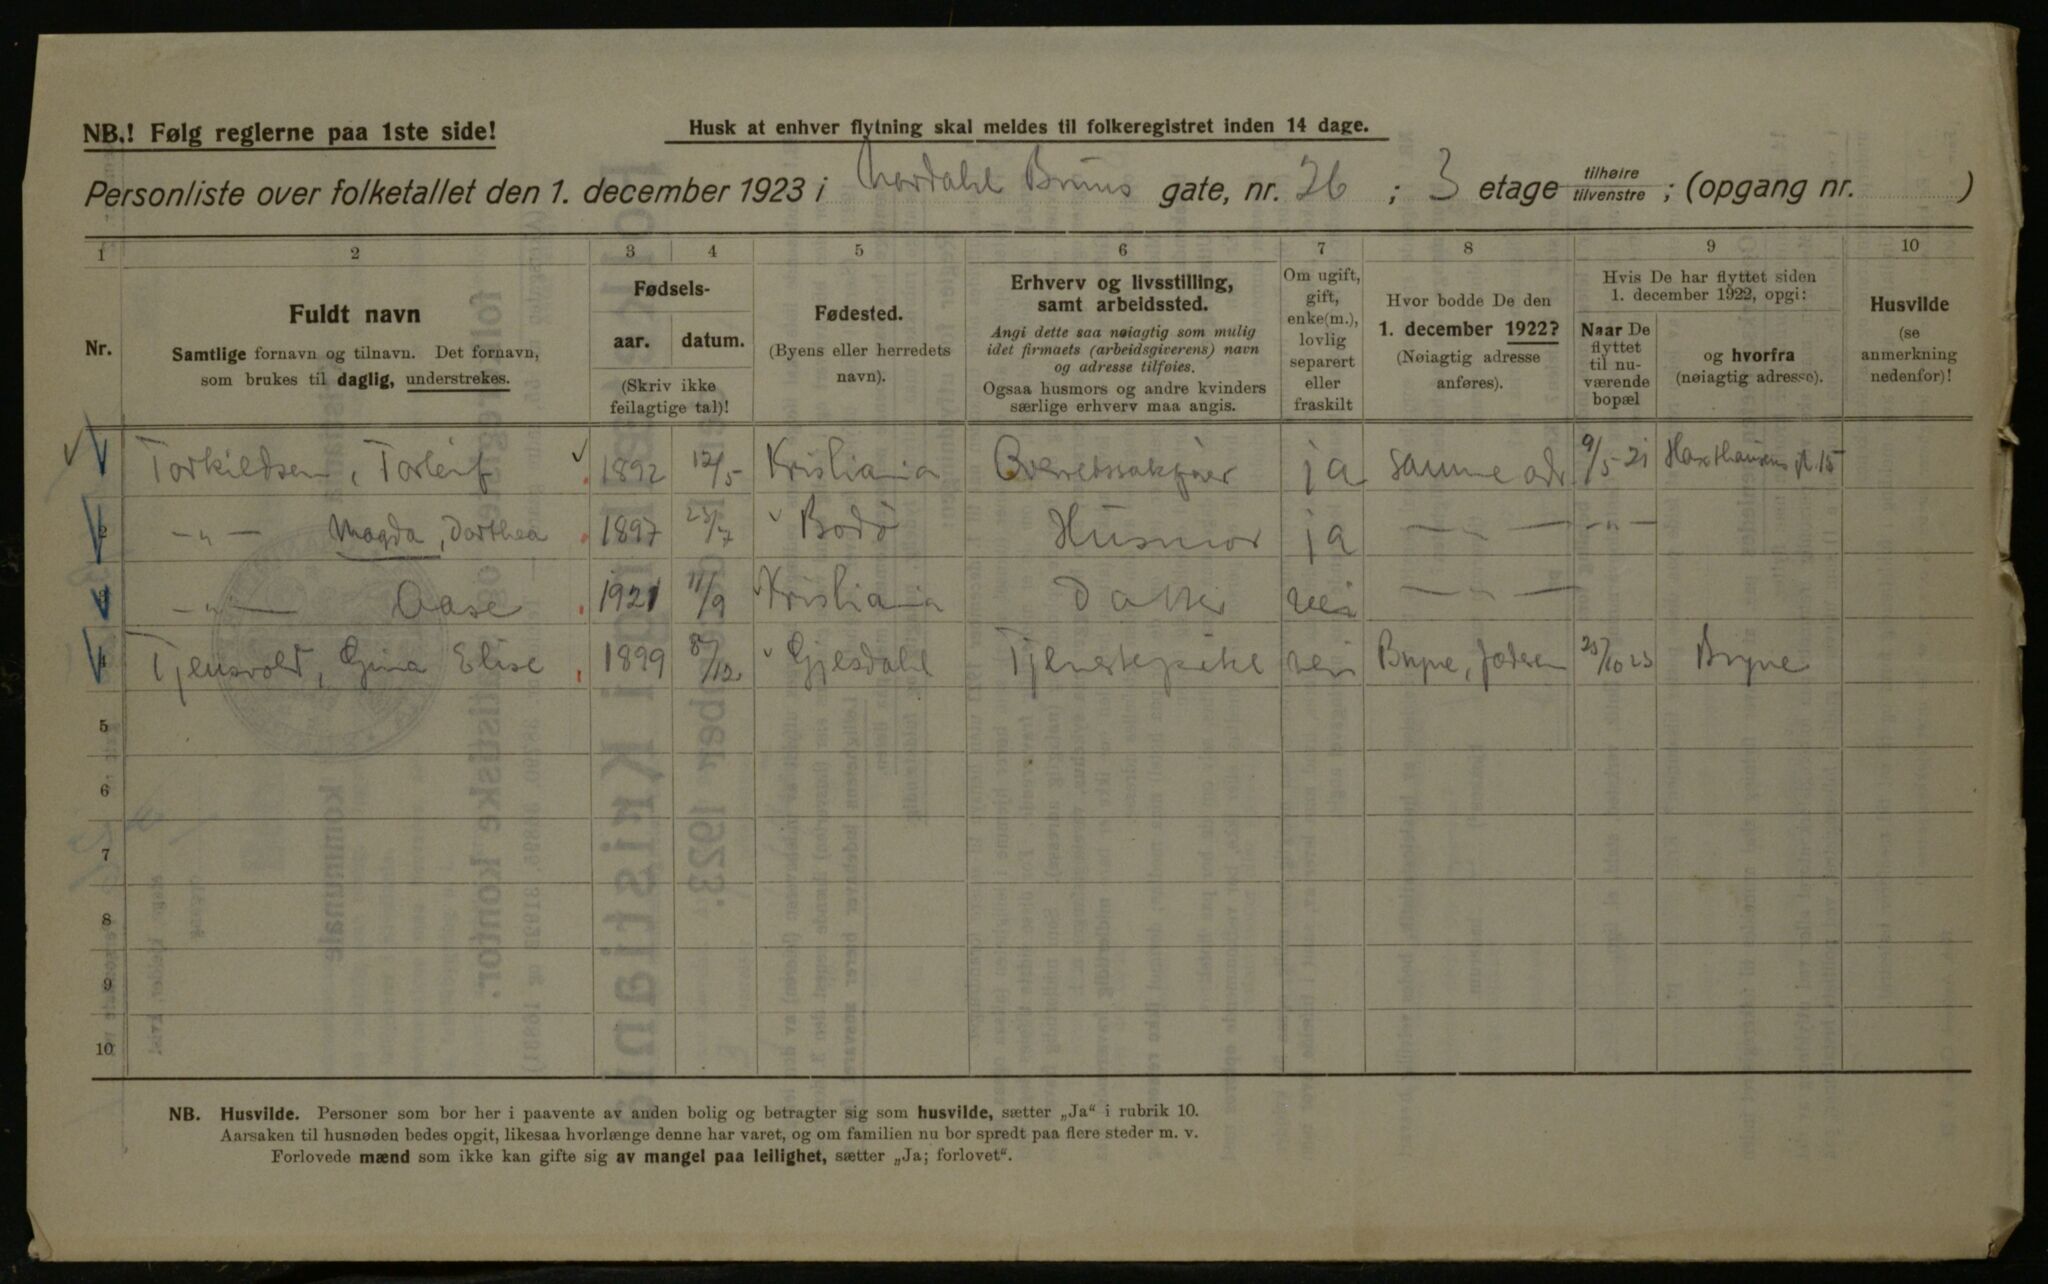 NB.! Følg reglerne paa 1ste side!
Husk at enhver flytning skal meldes til folkeregistret inden 14 dage.
Personliste over folketallet den 1. december 1923 i Nordahl Bruns gate, nr. 26 ; 3 etage tilhøire tilvenstre ; (opgang nr. )
1 2 3 4 5 6 7 8 9 10
Nr.
Fuldt navn
Samtlige fornavn og tilnavn. Det fornavn,
som brukes til daglig, understrekes.
Fødsels-
aar. datum.
(Skriv ikke
feilagtige tal)!
Fødested.
(Byens eller herredets
navn).
Erhverv og livsstilling,
samt arbeidssted.
Angi dette saa nøiagtig som mulig
idet firmaets (arbeidsgiverens) navn
og adresse tilføies.
Ogsaa husmors og andre kvinders
særlige erhverv maa angis.
Om ugift,
gift,
enke(m.),
lovlig
separert
eller
fraskilt
Hvor bodde De den
1. december 1922?
(Nøiagtig adresse
anføres).
Hvis De har flyttet siden
1. december 1922, opgi:
Naar De
flyttet
til nu-
værende
bopæl
og hvorfra
(nøiagtig adresse).
Husvilde
(se
anmerkning
nedenfor)!
1 Torkildsen, Torleif 1892 12/5 Kristiania Overretssakfører ja samme adr 9/5-21 Haxthausens gt. 15
2 —"— Magda, Dorthea 1897 23/7 Bodø Husmor ja —"— —"—
3 —"— Aase 1921 11/9 Kristiania Datter nei —"—
4 Tjensvold, Gina Elise 1899 8/12 Gjesdahl Tjenestepike nei Bryne, Jæderen 25/10 23 Bryne
5
6
7
8
9
10
NB. Husvilde. Personer som bor her i paavente av anden bolig og betragter sig som husvilde, sætter „Ja“ i rubrik 10.
Aarsaken til husnøden bedes opgit, likesaa hvorlænge denne har varet, og om familien nu bor spredt paa flere steder m. v.
Forlovede mænd som ikke kan gifte sig av mangel paa leilighet, sætter „Ja; forlovet“.